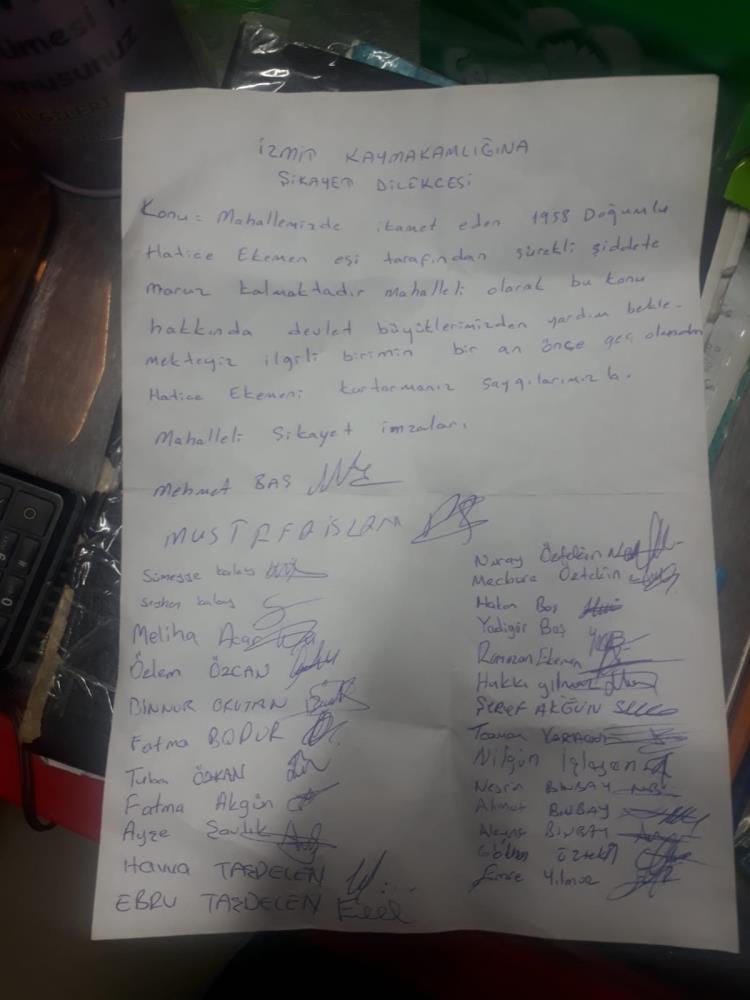 İZMİT KAYMAKAMLIĞINA
ŞİKAYET DİLEKCESİ
Konu = Mahallemizde ikamet eden 1958 Doğumlu
Hatice Ekemen eşi tarafından sürekli şiddete
maruz kalmaktadır Mahalleli olarak bu konu
hakkında devlet büyüklerimizden yardım bekle-
mekteyiz ilgili birimin bir an önce geç olmadan
Hatice Ekemeni kurtarmanız saygılarımızla.
Mahalleli Şikayet imzaları
Mehmet BAŞ
MUSTAFA İSLAM
Sümeyye balay
Seyhan balay
Meliha Acar
Özlem ÖZCAN
DİNNUR OKUTAN
Fatma BODUR
Tuba ÖZKAN
Fatma Akgün
Ayşe
Havva TAŞDELEN
EBRU TAŞDELEN
Nuray Öztekin
Macbure Öztekin
Hakan Baş
Yadigâr Baş
Ramazan Ekemen
Hakkı yılmaz
ŞEREF AKGÜN
Nilgün
Nesrin BİNBAY
Ahmet BİNBAY
BİNBAY
Gökhan
Emre Yılmaz
ümesi
musunuz